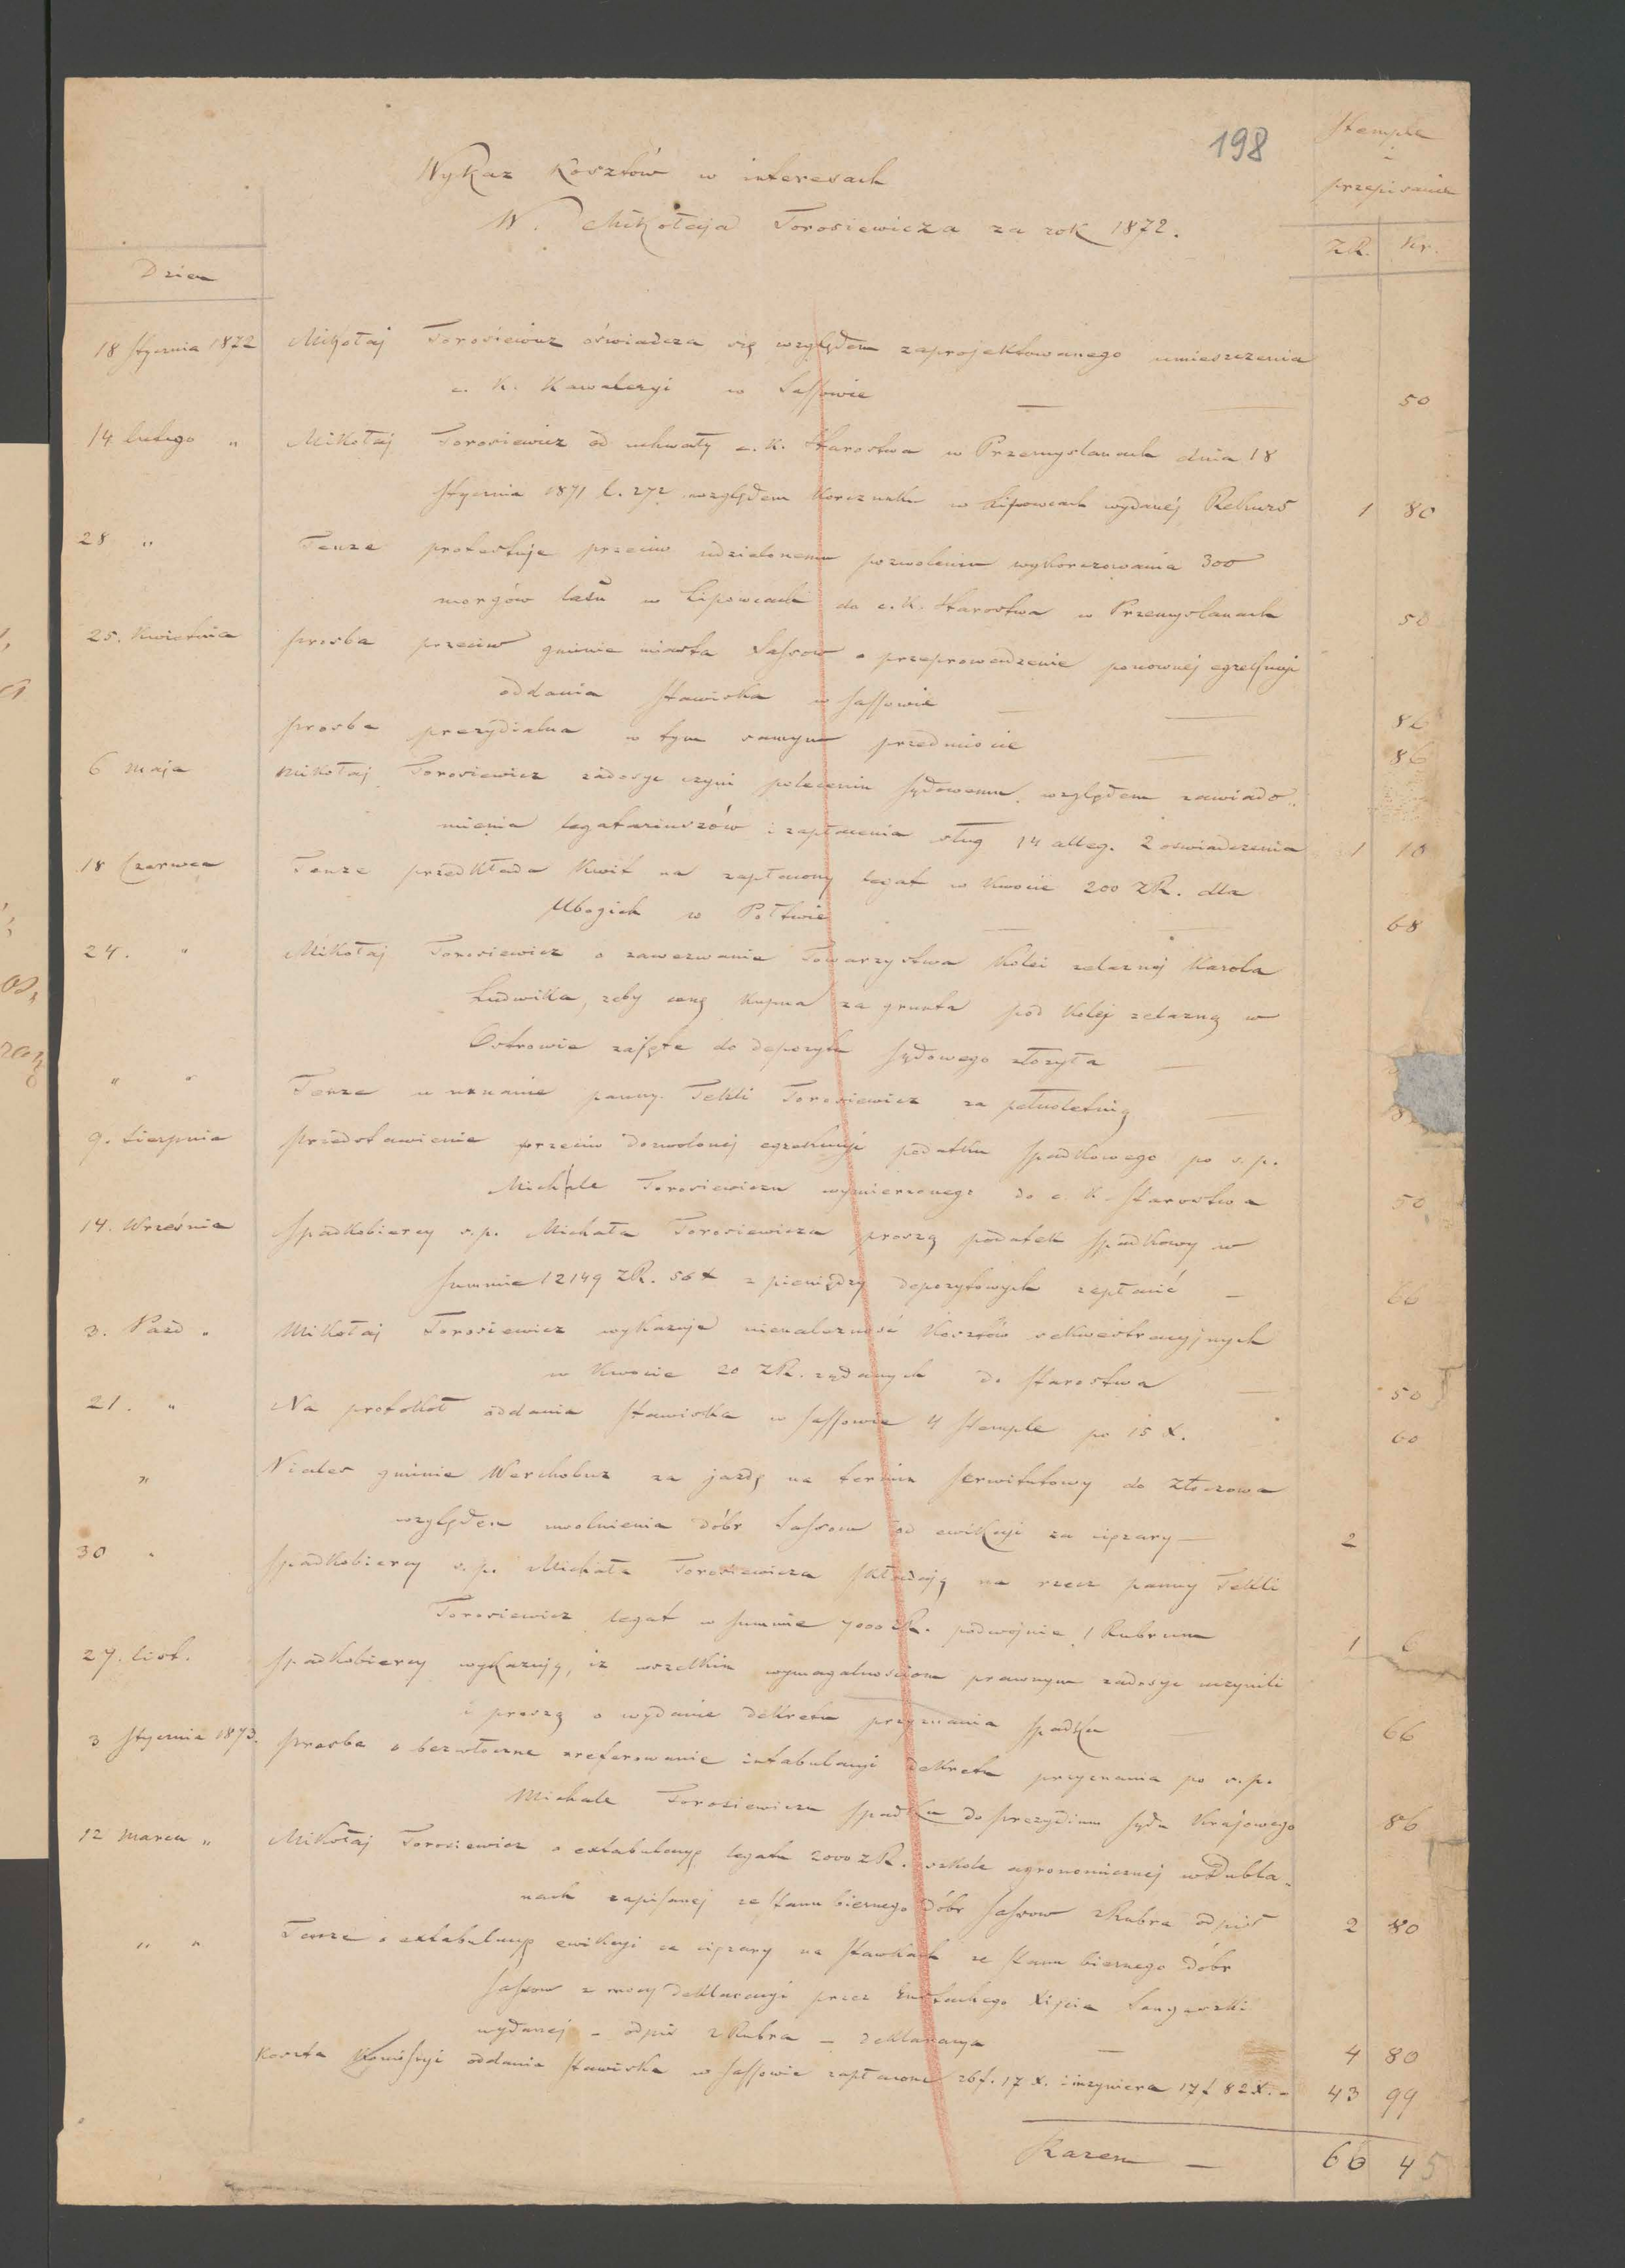 198
Stemple
i
przepisanie
Wykaz Kosztów w interesach
W. Mikołaja Torosiewicza za rok 1872.
ZR. Kr.
Dzien
18 Stycznia 1872 Mikołaj Torosiewicz oświadcza się względem zaprojektowanego umieszczenia
c. K. Kawaleryi w Sassowie — 50
14 lutego " Mikołaj Torosiewicz od uchwały c. K. Starostwa w Przemyslanach dnia 18
Stycznia 1871 l. 272 względem Korczunku w Lipowcach wydanéj Rekurs 1 80
28 " Tenze protestuje przeciw udzielonemu pozwoleniu wykorczowania 300
morgów lasu w Lipowcach do c. K. Starostwa w Przemyslanach 50
25. Kwietnia prosba przeciw gminie miasta Sassow o przeprowadzenie ponownéj egzekucyi
oddania Stawiska w Sassowie — 86
prosba prezydialna w tym samym przedmiocie — 86
6 maja Mikołaj Torosiewicz zadosyc czyni poleceniu Sądowemu względem zawiado-
mienia legataruszów i zapłacenia sług 14 alleg. 2 oswiadczenia 1 10
18 Czerwca Tenze przedkłada Kwit na zapłacony legat w Kwocie 200 ZR. dla
Ubogich w Połtwie — 68
24. " Mikołaj Torosiewicz o zawezwanie Towarzystwa Kolei zelaznéj Karola
Ludwika, zeby cenę Kupna za grunta pod Koléj zelazną w
Ostrowie zajęte do depozytu Sądowego złozyła —
" " Tenze o uznanie panny Tekli Torosiewicz za pełnoletnią —
9. Sierpnia Przedstawienie przeciw dozwolonéj egzekucyi podatku Spadkowego po s. p.
Michale Torosiewiczu wymierzonego do c. K. Starostwa 50
14. Wrzesnia Spadkobiercy s. p. Michała Torosiewicza proszą podatek Spadkowy w
Summie 12149 ZR. 56 x z pieniędzy depozytowych zapłacić — 66
3. Pazd. Mikołaj Torosiewicz wykazuje nienalezność Kosztów sekwestracyjnych
w Kwocie 20 ZR. ządanych do Starostwa — 50
21. " Na protokoł oddania Stawiska w Sassowie 4 Stemple po 15 x. 60
" gminie Werchobuz za jazdę na termin Serwitutowy do Złoczowa
względem uwolnienia dóbr Sassow od ewikcyi za cięzary — 2
30 " Spadkobiercy s. p. Michała Torosiewicza składają na rzecz panny Tekli
Torosiewicz legat w Summie 7000 ZR. podwójnie 1 Rubrum 1 6
27. list. Spadkobiercy wykazują, iz wszelkim wymagalnosciom prawnym zadosyc uczynili
i proszą o wydanie dekretu przyznania Spadku — 66
3 Stycznia 1873. Prosba o bezwłoczne zreferowanie intabulacyi dekretu przyznania po s. p.
Michale Torosiewiczu Spadku do prezydium Sądu Krajowego 86
12 marca " Mikołaj Torosiewicz o extabulacyę legatu 2000 ZR. szkole agronomicznéj w Dubla-
nach zapisanéj ze Stanu biernego dóbr Sassow 2 Rubra odpis 2 80
" " Tenze o extabulacyę ewikcyi za cięzary na Stawkach ze Stanu biernego dóbr
Sassow z mocy deklaracyi przez Eustachego Xięcia Sanguszki
wydanéj - odpis 2 Rubra - deklaracya — 4 80
Koszta Komissyi oddania Stawiska w Sassowie zapłacone 26 f. 17 x. inzyniera 17 f 82 x. - 43 99
Razem — 66 45